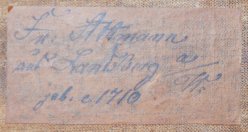 Fr. Altmann
aus Landsberg a/W.
geb. c. 1710